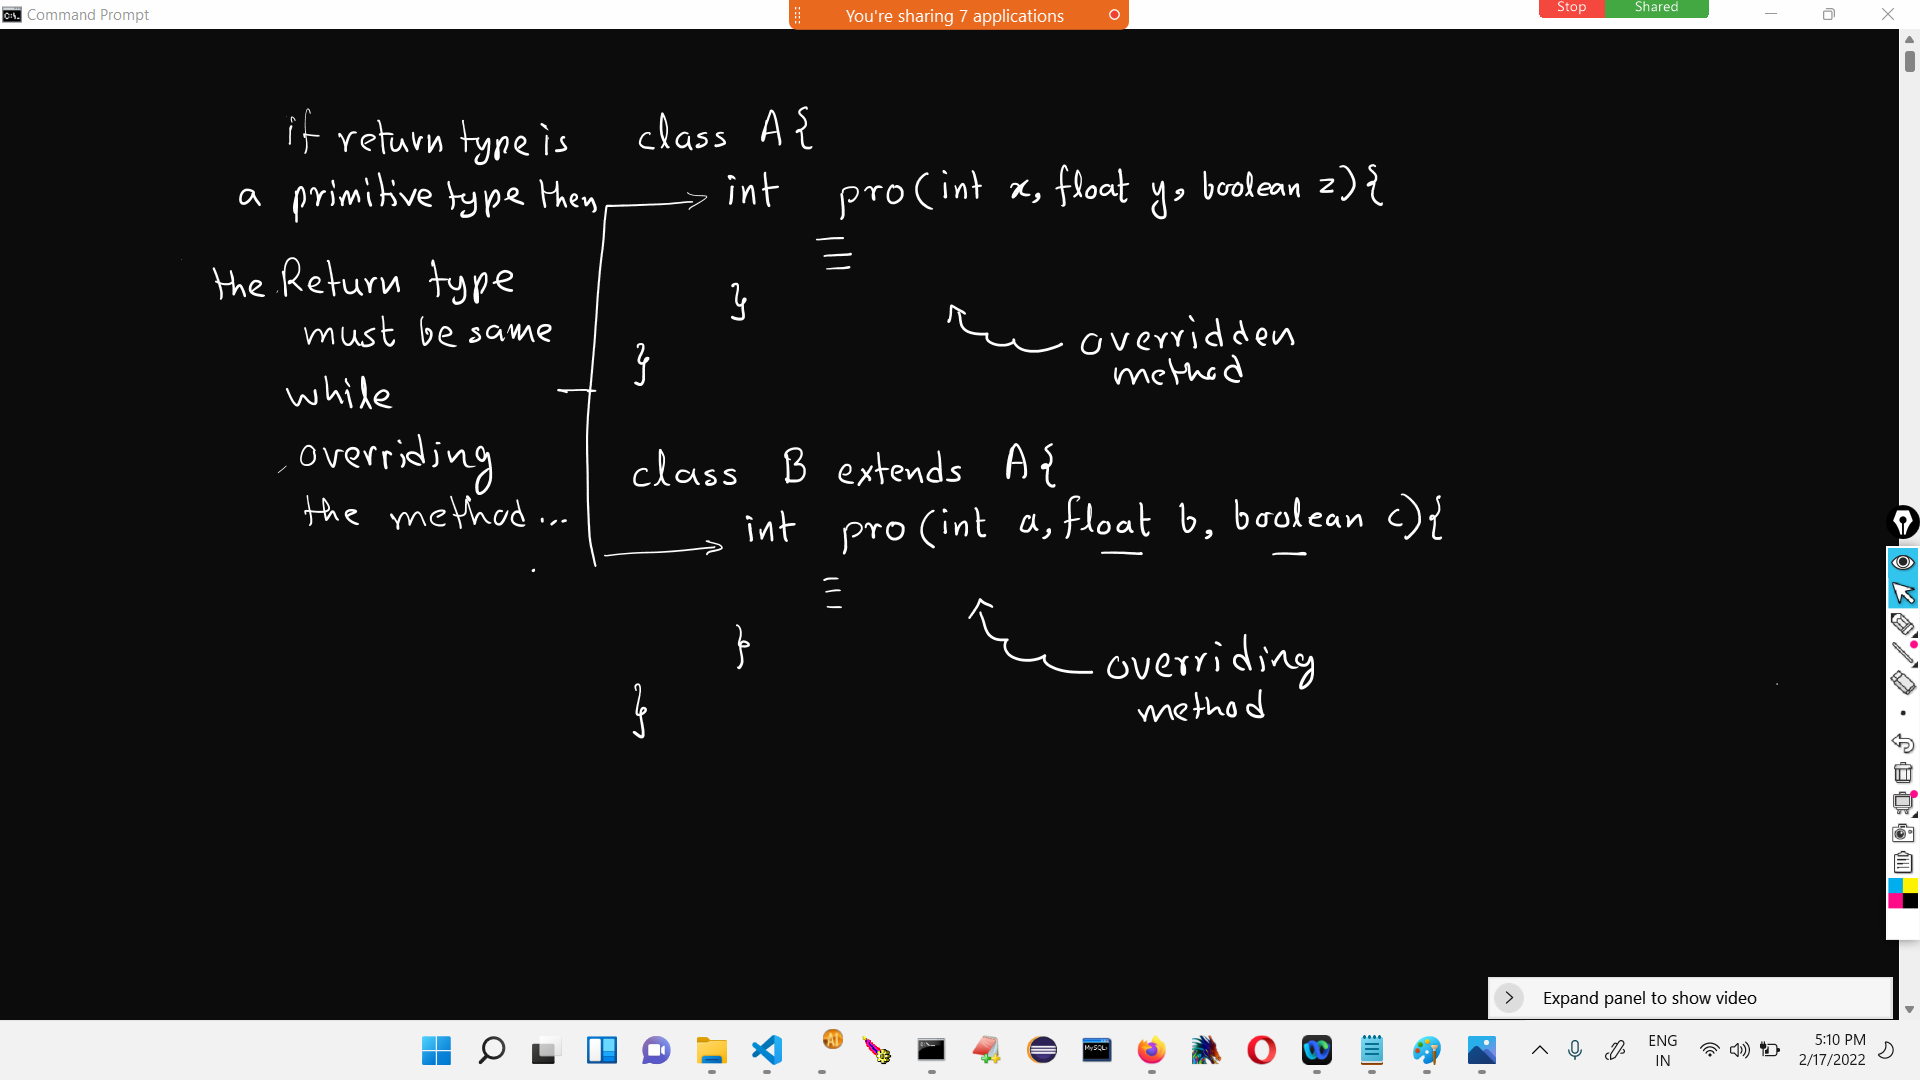 Command Prompt
You're sharing 7 applications
Stop Shared
if return type is
a primitive type then
the Return type
must be same
while
overriding
the method...
class A{
int pro(int x, float y, boolean z){
}
}
overridden
method
class B extends A{
int pro(int a, float b, boolean c){
}
}
overriding
method
Expand panel to show video
AI
MySQL
ENG
IN
5:10 PM
2/17/2022